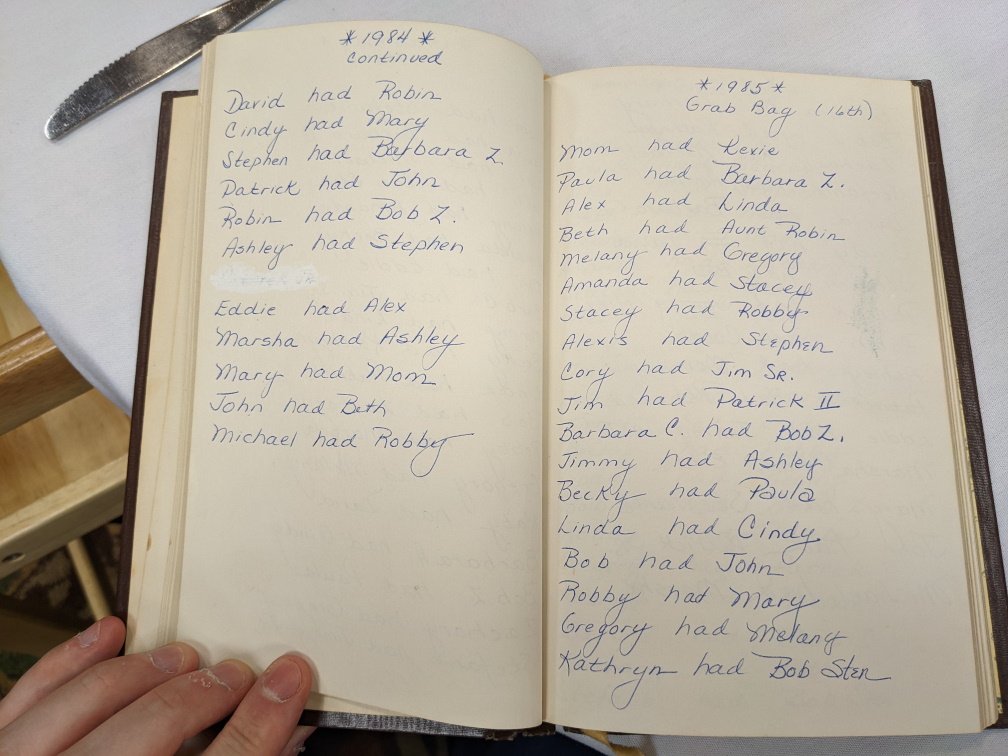 *1984*
continued
David had Robin
Cindy had Mary
Stephen had Barbara Z.
Patrick had John
Robin had Bob Z.
Ashley had Stephen
Eddie had Alex
Marsha had Ashley
Mary had Mom
John had Beth
Michael had Robby
*1985*
Grab Bag (16th)
Mom had Lexie
Paula had Barbara Z.
Alex had Linda
Beth had Aunt Robin
Melany had Gregory
Amanda had Stacey
Stacey had Robby
Alexis had Stephen
Cory had Jim SR.
Jim had Patrick II
Barbara C. had Bob Z.
Jimmy had Ashley
Becky had Paula
Linda had Cindy
Bob had John
Robby had Mary
Gregory had Melany
Kathryn had Bob Sten